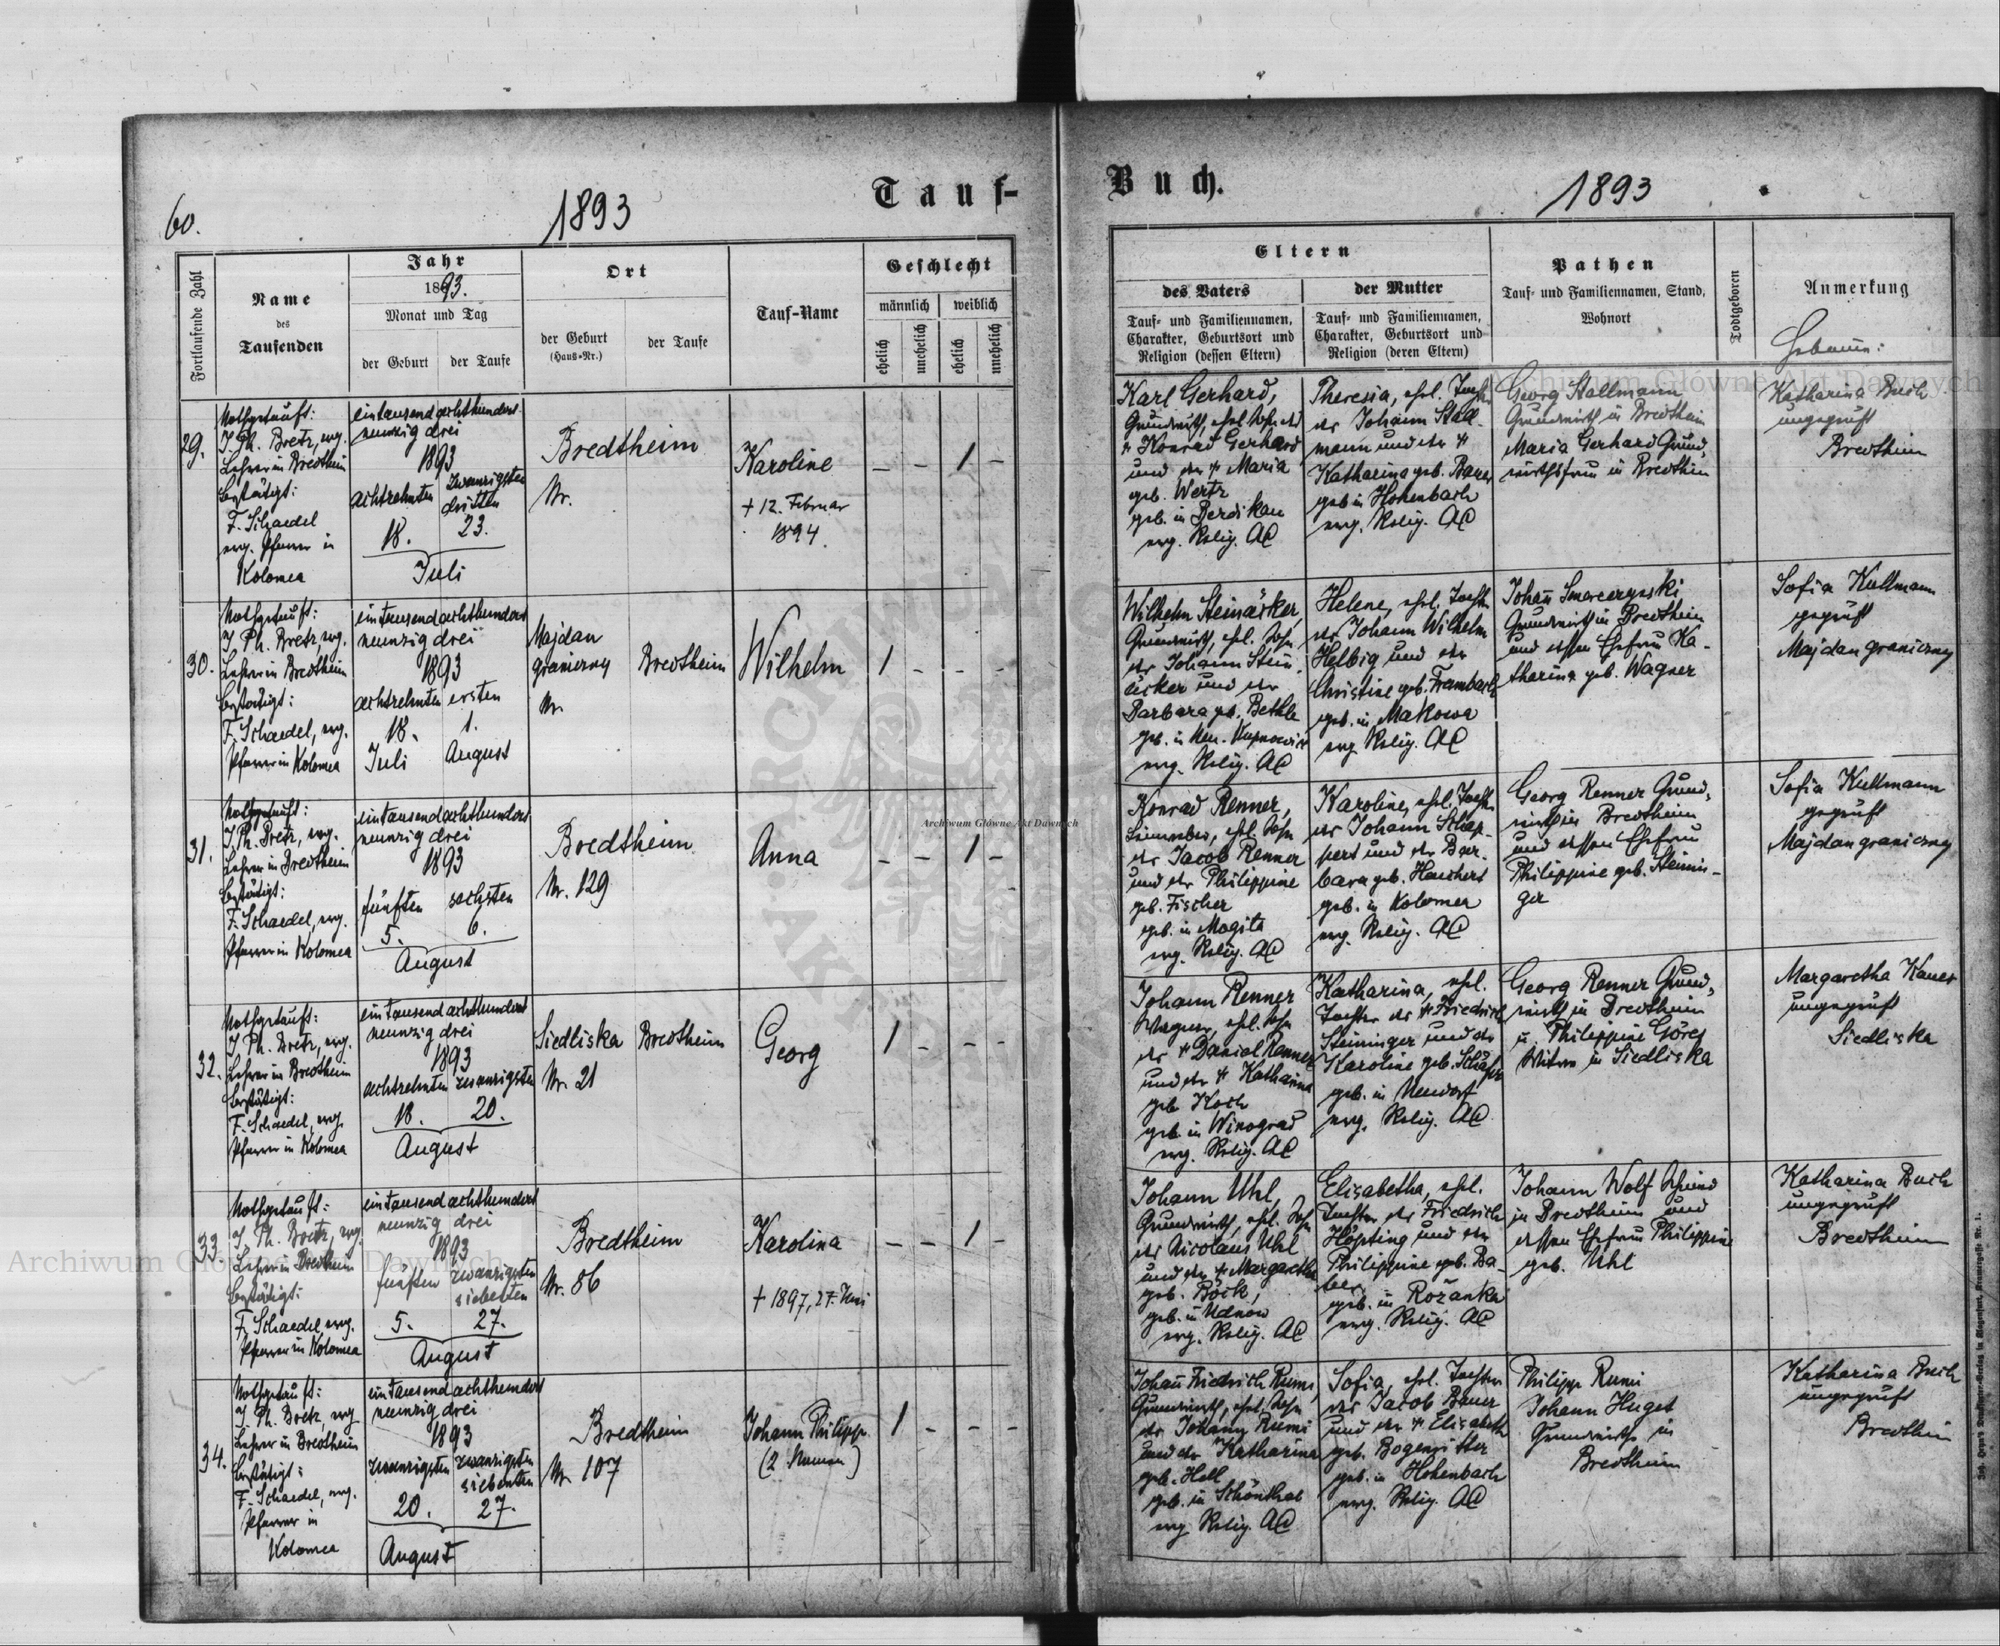 60.
1893
Tauf-
Fortlaufende Zahl
Name
des
Taufenden
Jahr
1893.
Monat und Tag
der Geburt
der Taufe
Ort
der Geburt
(Haus-Nr.)
der Taufe
Tauf-Name
Geschlecht
männlich
weiblich
ehelich
unehelich
ehelich
unehelich
29.
Nothgetauft:
J. Ph. Bretz, evg.
Lehrer in Bredtheim
bestätigt:
F. Schaedel
evg. Pfarrer in
Kolomea
eintausendachthundert
neunzig drei
1893
achtzehnten
zwanzigsten
dritten
18.
23.
Juli
Bredtheim
Nr.
Karoline
+ 12. Februar
1894.
– – 1 –
30.
Nothgetauft:
J. Ph. Bretz, evg.
Lehrer in Bredtheim
bestätigt:
F. Schaedel, evg.
Pfarrer in Kolomea
eintausendachthundert
neunzig drei
1893
achtzehnten ersten
18. 1.
Juli August
Majdan
graniczny
Bredtheim
Nr.
Wilhelm
1 – – –
31.
Nothgetauft:
J. Ph. Bretz, evg.
Lehrer in Bredtheim
bestätigt:
F. Schaedel, evg.
Pfarrer in Kolomea
eintausendachthundert
neunzig drei
1893
fünften sechsten
5. 6.
August
Bredtheim
Nr. 129
Anna
– – 1 –
32.
Nothgetauft:
J. Ph. Bretz, evg.
Lehrer in Bredtheim
bestätigt:
F. Schaedel, evg.
Pfarrer in Kolomea
eintausendachthundert
neunzig drei
1893
achtzehnten zwanzigsten
18. 20.
August
Siedliska Bredtheim
Nr. 21
Georg
1 – – –
33.
Nothgetauft:
J. Ph. Bretz, evg.
Lehrer in Bredtheim
bestätigt:
F. Schaedel, evg.
Pfarrer in Kolomea
eintausendachthundert
neunzig drei
1893
fünften zwanzigsten
siebenten
5. 27.
August
Bredtheim
Nr. 86
Karolina
+ 1897, 27. Juni
– – 1 –
34.
Nothgetauft:
J. Ph. Bretz, evg.
Lehrer in Bredtheim
bestätigt:
F. Schaedel, evg.
Pfarrer in
Kolomea
eintausendachthundert
neunzig drei
1893
zwanzigsten zwanzigsten
siebenten
20. 27.
August
Bredtheim
Nr. 107
Johann Philipp
(2 Namen)
1 – – –
Buch.
1893
Eltern
des Vaters
Tauf- und Familiennamen,
Charakter, Geburtsort und
Religion (dessen Eltern)
der Mutter
Tauf- und Familiennamen,
Charakter, Geburtsort und
Religion (deren Eltern)
Pathen
Tauf- und Familiennamen, Stand,
Wohnort
Todtgeboren
Anmerkung
Hebamme:
Karl Gerhard,
Grundwirth, ehel. Sohn des
+ Konrad Gerhard
und der + Maria
geb. Wertz
geb. in
evg. Relig. AC
Theresia, ehel. Tochter
des Johann Stall-
mann und der +
Katharina geb. Bauer
geb. in Hohenbach
evg. Relig. AC
Georg Stallmann
Grundwirth in Bredtheim
Maria Gerhard Grund-
wirthsfrau in Bredtheim
Katharina Buch
ungeprüft
Bredtheim
Wilhelm Steinäcker,
Grundwirth, ehel. Sohn
des Johann Stein-
äcker und der
Barbara geb. Bethle
geb. in Neu-Kupnowice
evg. Relig. AC
Helene, ehel. Tochter
des Johann Wilhelm
Helbig und der
Christine geb. Frambach
geb. in Makowa
evg. Relig. AC
Johann
Grundwirth in Bredtheim
und dessen Ehefrau Ka-
tharina geb. Wagner
Sofia Kullmann
geprüft
Majdan graniczny
Konrad Renner,
ehel. Sohn
des Jacob Renner
und der Philippine
geb. Fischer
geb. in Mogila
evg. Relig. AC
Karoline, ehel. Tochter
des Johann Schap-
pert und der Bar-
bara geb.
geb. in Kolomea
evg. Relig. AC
Georg Renner Grund-
wirth in Bredtheim
und dessen Ehefrau
Philippine geb. Steinin-
ger
Sofia Kullmann
geprüft
Majdan graniczny
Johann Renner
Wagner, ehel. Sohn
des + Daniel Renner
und der + Katharina
geb. Koch
geb. in Winograd
evg. Relig. AC
Katharina, ehel.
Tochter des + Friedrich
Steininger und der
Karoline geb. Schäfer
geb. in Neudorf
evg. Relig. AC
Georg Renner Grund-
wirth in Bredtheim
u. Philippine Görez
Witwe in Siedliska
Margaretha Kauer
ungeprüft
Siedliska
Johann Uhl,
Grundwirth, ehel. Sohn
des Nicolaus Uhl
und der + Margaretha
geb. Böck,
geb. in Udnow
evg. Relig. AC
Elisabetha, ehel.
Tochter des Friedrich
Höpting und der
Philippine geb. Ba-
ber
geb. in Rożanka
evg. Relig. AC
Johann Wolf
in Bredtheim und
dessen Ehefrau Philippine
geb. Uhl
Katharina Buch
ungeprüft
Bredtheim
Johann Friedrich Rumi,
Grundwirth, ehel. Sohn
des Johann Rumi
und der Katharina
geb. Hell
geb. in Schönthal
evg. Relig. AC
Sofia, ehel. Tochter
des Jacob Bauer
und der + Elisabeth
geb. Bogenritter
geb. in Hohenbach
evg. Relig. AC
Philipp Rumi
Johann Huget
Grundwirthe in
Bredtheim
Katharina Buch
ungeprüft
Bredtheim
Archiwum Główne Akt Dawnych
Archiwum Główne Akt Dawnych
Archiwum Główne Akt Dawnych